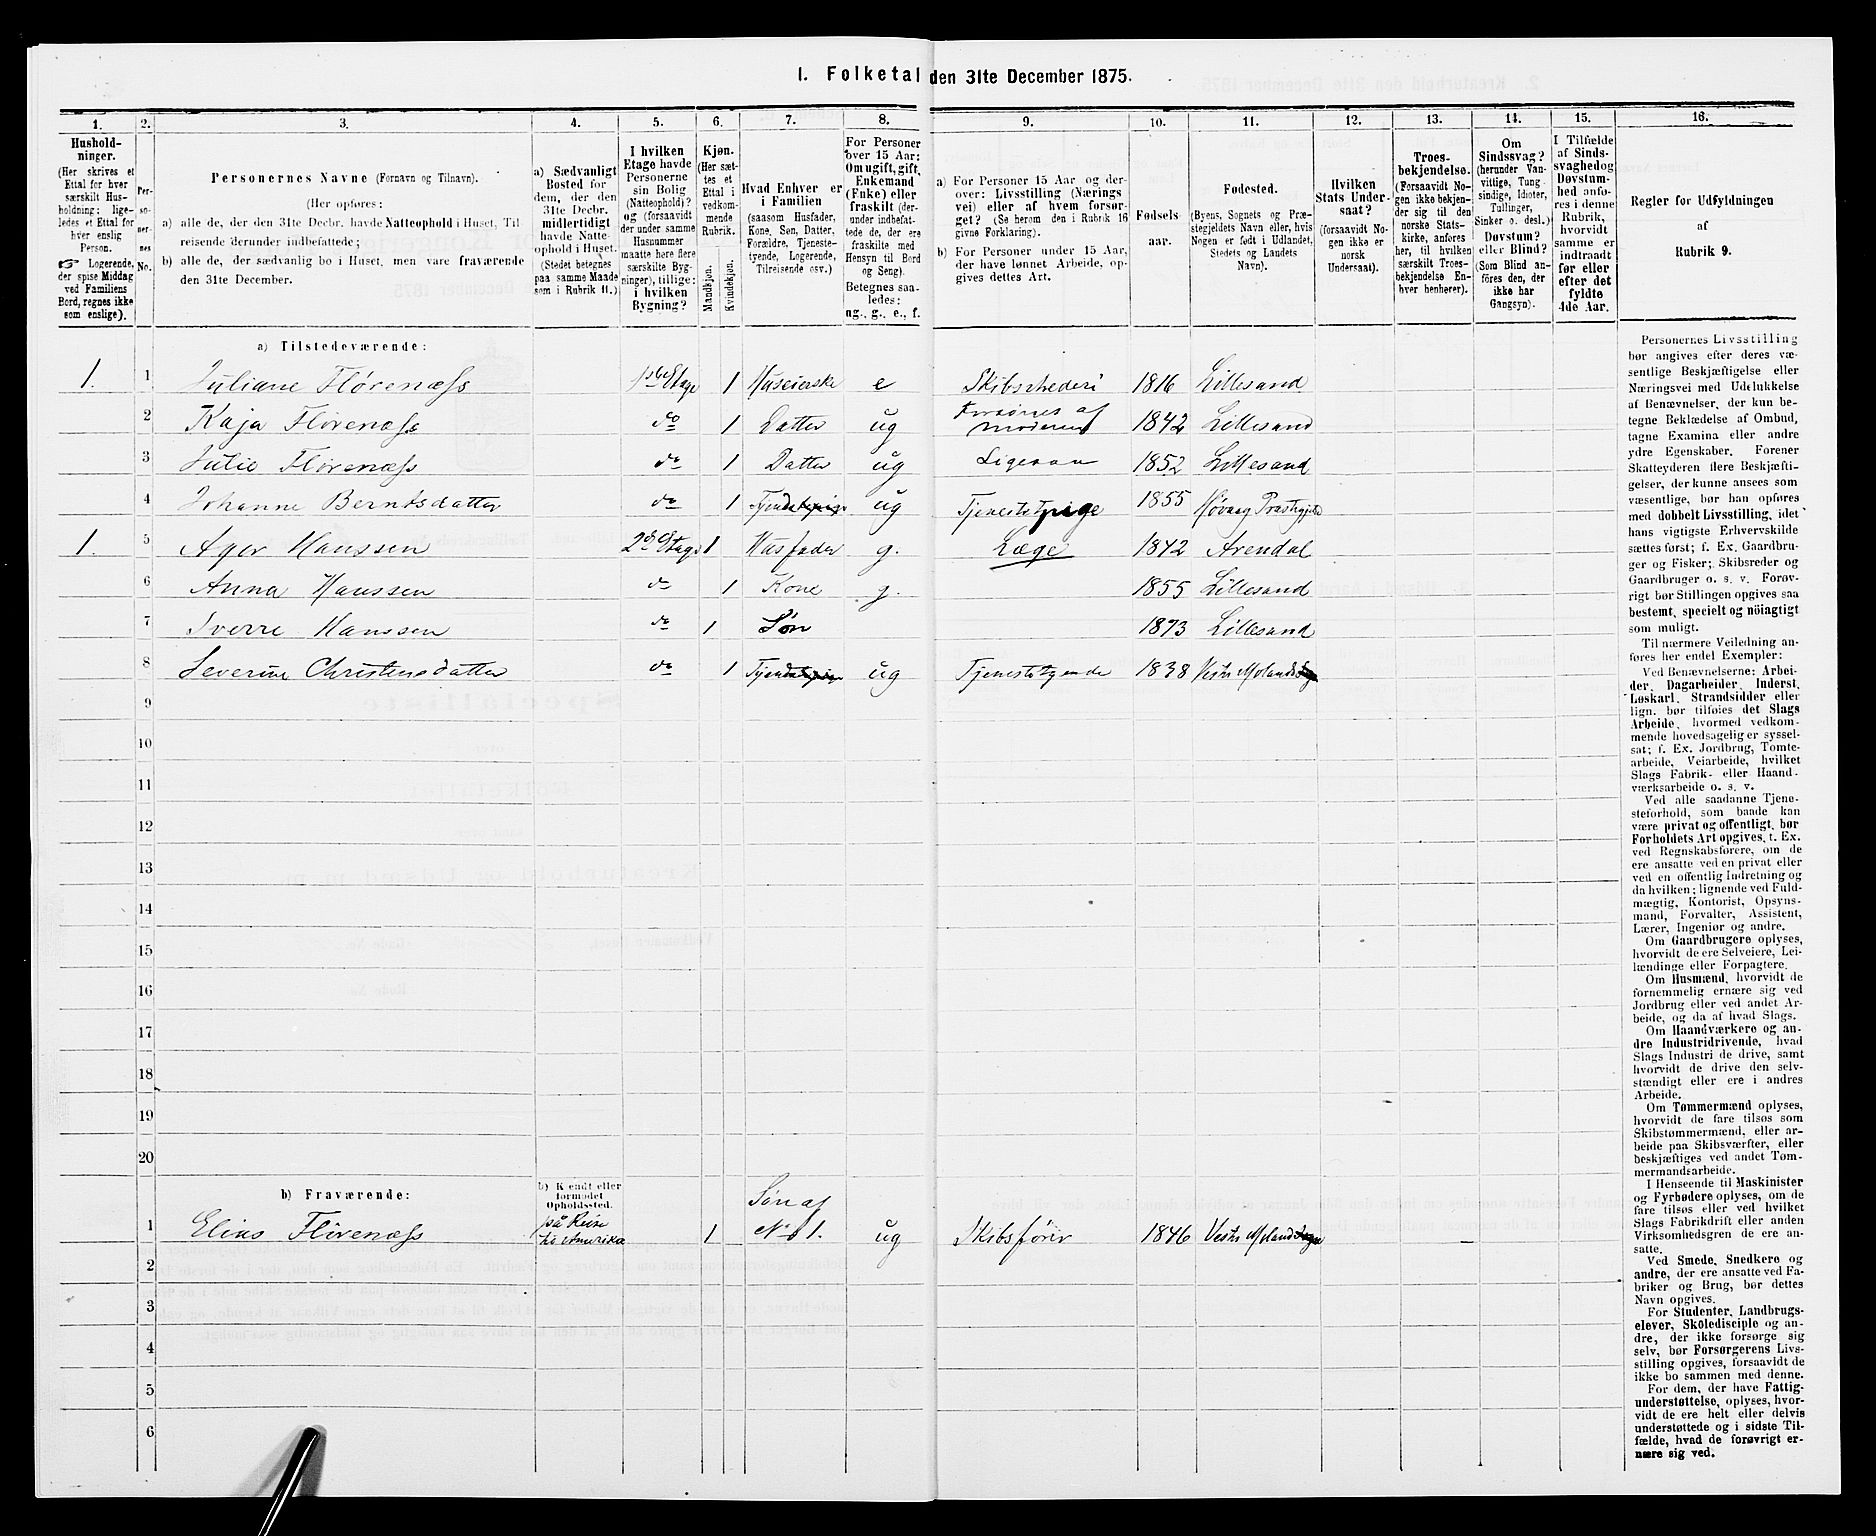 1. Folketal den 31te December 1875.
1. 2. 3. 4. 5. 6. 7. 8. 9. 10. 11. 12. 13. 14. 15. 16.
Hushold-
ninger.
(Her skrives et
Ettal for hver
særskilt Hus-
holdning; lige-
ledes et Ettal for
hver enslig
Person.
☞ Logerende,
der spise Middag
ved Familiens
Bord, regnes ikke
som enslige).
Per-
so-
ner-
nes
No.
Personernes Navne (Fornavn og Tilnavn).
(Her opføres:
a) alle de, der den 31te Decbr. havde Natteophold i Huset, Til-
reisende derunder indbefattede;
b) alle de, der sædvanlig bo i Huset, men vare fraværende
den 31te December.
a) Sædvanligt
Bosted for
dem, der den
31te Decbr.
midlertidigt
havde Natte-
ophold i Huset.
(Stedet betegnes
paa samme Maade
som i Rubrik 11.)
I hvilken
Etage havde
Personerne
sin Bolig
(Natteophold)?
og (forsaavidt
der under samme
Husnummer
maatte høre flere
særskilte Byg-
ninger), tillige:
i hvilken
Bygning?
Kjøn.
(Her sæt-
tes et
Ettal i
vedkom-
mende
Rubrik.
Mandkjøn.
Kvindekjøn.
Hvad Enhver er
i Familien
(saasom Husfader,
Kone, Søn, Datter,
Forældre, Tjeneste-
tyende, Logerende,
Tilreisende osv.)
For Personer
over 15 Aar:
Om ugift, gift,
Enkemand
(Enke) eller
fraskilt (der-
under indbefat-
tede de, der ere
fraskilte med
Hensyn til Bord
og Seng).
Betegnes saa-
ledes:
ug., g., e., f.
a) For Personer 15 Aar og der-
over: Livsstilling (Nærings
vei) eller af hvem forsør-
get? (Se herom den i Rubrik 16
givne Forklaring).
b) For Personer under 15 Aar,
der have lønnet Arbeide, op-
gives dettes Art.
Fødsels-
aar.
Fødested.
(Byens, Sognets og Præ-
stegjeldets Navn eller, hvis
Nogen er født i Udlandet,
Stedets og Landets
Navn).
Hvilken
Stats Under-
saat?
(forsaavidt No-
gen ikke er
norsk
Undersaat).
Troes-
bekjendelse.
(Forsaavidt No-
gen ikke bekjen-
der sig til den
norske Stats-
kirke, anføres
her, til hvilken
særskilt Troes-
bekjendelse En-
hver henhører).
Om
Sindssvag?
(herunder Van-
vittige, Tung-
sindige, Idioter,
Tullinger,
Sinker o. desl.)
Døvstum?
eller Blind?
(Som Blind an-
føres den, der
ikke har
Gangsyn).
I Tilfælde
af Sinds-
svaghed og
Døvstum-
hed anfø-
res i denne
Rubrik,
hvorvidt
samme er
indtraadt
før eller
efter det
fyldte
4de Aar.
Regler for Udfyldningen
af
Rubrik 9.
a) Tilstedeværende:
1. 1 Juliane Flørenæss 1ste Etage 1 Huseierske e Skibsrhederi 1816 Lillesand
2 Kaja Flørenæss do 1 Datter ug Forsørges af Moderen 1842 Lillesand
3 Julie Flørenæss do 1 Datter ug Ligesaa 1852 Lillesand
4 Johanne Berntsdatter do 1 ug Tjenestepige 1855 Høvaag Præstegjeld
1. 5 Hanssen 2den Etage 1 Husfader g. Læge 1842 Arendal
6 Anna Hanssen do 1 Kone g. 1855 Lillesand
7 Sverre Hanssen do 1 Søn 1873 Lillesand
8 Severine Christensdatter do 1 ug Tjenestetyende 1838 Vestre Moland
9
10
11
12
13
14
15
16
17
18
19
20
b) Fraværende:
b) Kendt eller
formodet
Opholdssted.
1 Elias Flørenæss på Reise til Amerika 1 Søn af No 1. ug Skibsfører 1846 Vestre Moland
2
3
4
5
6
Personernes Livsstilling
bør angives efter deres væ-
sentlige Beskjæftigelse eller
Næringsvei med Udelukkelse
af Benævnelser, der kun be-
tegne Beklædelse af Ombud,
tagne Examina eller andre
ydre Egenskaber. Forener
Skatteyderen flere Beskjæfti-
gelser, der kunne ansees som
væsentlige, bør han opføres
med dobbelt Livsstilling, idet
hans vigtigste Erhvervskilde
sættes først; f. Ex. Gaardbru-
ger og Fisker; Skibsreder og
Gaardbruger o. s. v. Forøv-
rigt bør Stillingen opgives saa
bestemt, specielt og nöiagtigt
som muligt.
Til nærmere Veiledning an-
føres her endel Exempler:
Ved Benævnelserne: Arbei-
der, Dagarbeider, Inderst,
Løskarl, Strandsidder eller
lign. bør tilføies det Slags
Arbeide, hvormed vedkom-
mende hovedsagelig er syssel-
sat; f. Ex. Jordbrug, Tomte-
arbeide, Veiarbeide, hvilket
Slags Fabrik- eller Haand-
værksarbeide o. s. v.
Ved alle saadanne Tjene-
steforhold, som baade kan
være privat og offentligt, bør
Forholdets Art opgives, t. Ex.
ved Regnskabsførere, om de
ere ansatte ved en privat eller
ved en offentlig Indretning og
da hvilken; lignende ved Fuld-
mægtig, Kontorist, Opsyns-
mand, Forvalter, Assistent,
Lærer, Ingeniør og andre.
Om Gaardbrugere oplyses,
hvorvidt de ere Selveiere, Lei-
lændinge eller Forpagtere.
Om Husmænd, hvorvidt de
fornemmelig ernære sig ved
Jordbrug eller ved andet Ar-
beide, og da af hvad Slags.
Om Haandværkere og an-
dre Industridrivende, hvad
Slags Industri de drive, samt
hvorvidt de drive den selv-
stændigt eller ere i andres
Arbeide.
Om Tømmermænd oplyses,
hvorvidt de fare tilsøs som
Skibstømmermænd, eller ar-
beide paa Skibsværfter, eller
beskjæftiges ved andet Tøm-
mermandsarbeide.
I Henseende til Maskinister
og Fyrbødere oplyses, om de
fare tilsøs eller ved hvilket
Slags Fabrikdrift eller anden
Virksomhedsgren de ere an-
satte.
Ved Smede, Snedkere og
andre, der ere ansatte ved Fa-
briker og Brug, bør dettes
Navn opgives.
For Studenter, Landbrugs-
elever, Skoledisciple og an-
dre, der ikke forsørge sig
selv, bør Forsørgerens Livs-
stilling opgives, forsaavidt de
ikke bo sammen med denne.
For dem, der have Fattig-
understøttelse, oplyses, hvor-
vidt de ere helt eller delvis
understøttede og i sidste Til-
fælde, hvad de forøvrigt er-
nære sig ved.